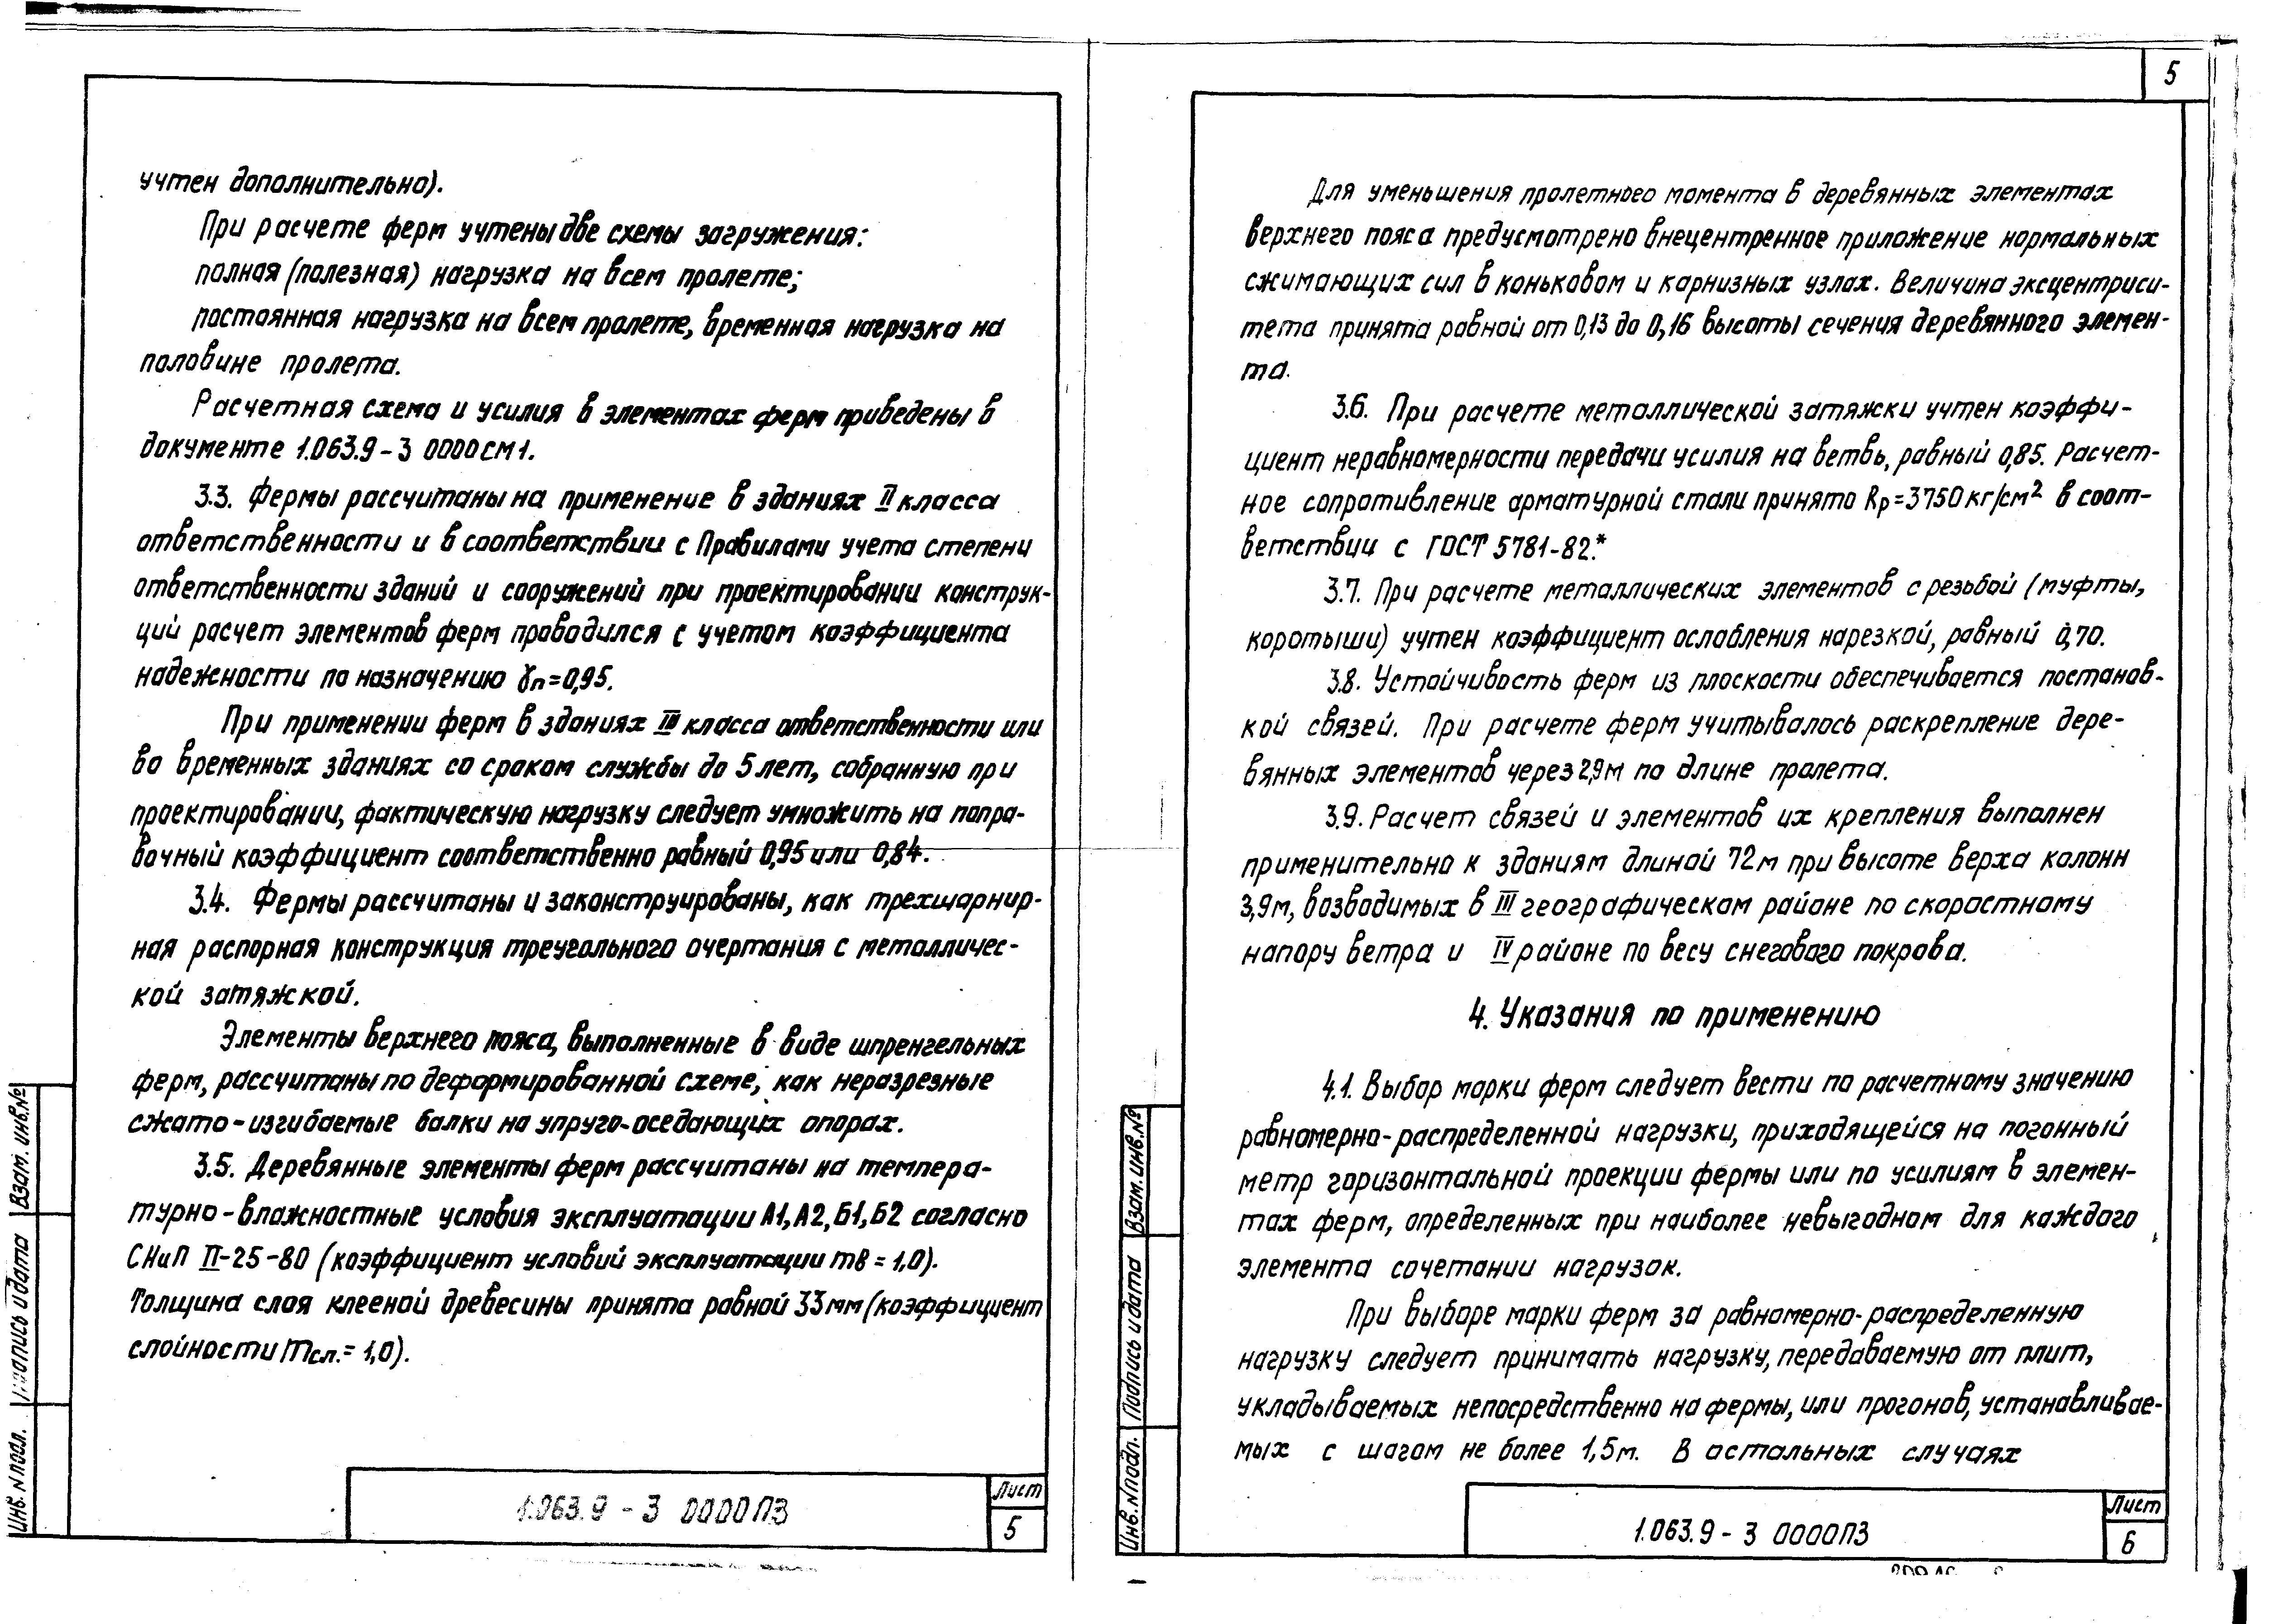 учтен дополнительно).
При расчете ферм учтены две схемы загружения:
полная (полезная) нагрузка на всем пролете;
постоянная нагрузка на всем пролете, временная нагрузка на
половине пролета.
Расчетная схема и усилия в элементах ферм приведены в
документе 1.063.9-3 0000СМ1.
3.3. Фермы рассчитаны на применение в зданиях II класса
ответственности и в соответствии с Правилами учета степени
ответственности зданий и сооружений при проектировании конструк-
ций расчет элементов ферм проводился с учетом коэффициента
надежности по назначению γп=0,95.
При применении ферм в зданиях III класса ответственности или
во временных зданиях со сроком службы до 5 лет, собранную при
проектировании, фактическую нагрузку следует умножить на попра-
вочный коэффициент соответственно равный 0,95 или 0,84.
3.4. Фермы рассчитаны и законструированы, как трехшарнир-
ная распорная конструкция треугольного очертания с металличес-
кой затяжкой.
Элементы верхнего пояса, выполненные в виде шпренгельных
ферм, рассчитаны по деформированной схеме, как неразрезные
сжато-изгибаемые балки на упруго-оседающих опорах.
3.5. Деревянные элементы ферм рассчитаны на темпера-
турно-влажностные условия эксплуатации А1, А2, Б1, Б2 согласно
СНиП II-25-80 (коэффициент условий эксплуатации mв = 1,0).
Толщина слоя клееной древесины принята равной 33 мм (коэффициент
слойности mсл. = 1,0).
1.063.9-3 0000ПЗ
Лист
5
Инв. N подл.
Подпись и дата
Взам. инв.№
5
Для уменьшения пролетного момента в деревянных элементах
верхнего пояса предусмотрено внецентренное приложение нормальных
сжимающих сил в коньковом и карнизных узлах. Величина эксцентриси-
тета принята равной от 0,13 до 0,16 высоты сечения деревянного элемен-
та.
3.6. При расчете металлической затяжки учтен коэффи-
циент неравномерности передачи усилия на ветвь, равный 0,85. Расчет-
ное сопротивление арматурной стали принято Rр=3750 кг/см² в соот-
ветствии с ГОСТ 5781-82.*
3.7. При расчете металлических элементов с резьбой (муфты,
коротыши) учтен коэффициент ослабления нарезкой, равный 0,70.
3.8. Устойчивость ферм из плоскости обеспечивается постанов-
кой связей. При расчете ферм учитывалось раскрепление дере-
вянных элементов через 2,9м по длине пролета.
3.9. Расчет связей и элементов их крепления выполнен
применительно к зданиям длиной 72м при высоте верха колонн
3,9м, возводимых в III географическом районе по скоростному
напору ветра и IV районе по весу снегового покрова.
4. Указания по применению
4.1. Выбор марки ферм следует вести по расчетному значению
равномерно-распределенной нагрузки, приходящейся на погонный
метр горизонтальной проекции фермы или по усилиям в элемен-
тах ферм, определенных при наиболее невыгодном для каждого
элемента сочетании нагрузок.
При выборе марки ферм за равномерно-распределенную
нагрузку следует принимать нагрузку, передаваемую от плит,
укладываемых непосредственно на фермы, или прогонов, устанавливае-
мых с шагом не более 1,5м. В остальных случаях
1.063.9-3 0000ПЗ
Лист
6
Инв. N подл.
Подпись и дата
Взам. инв.№